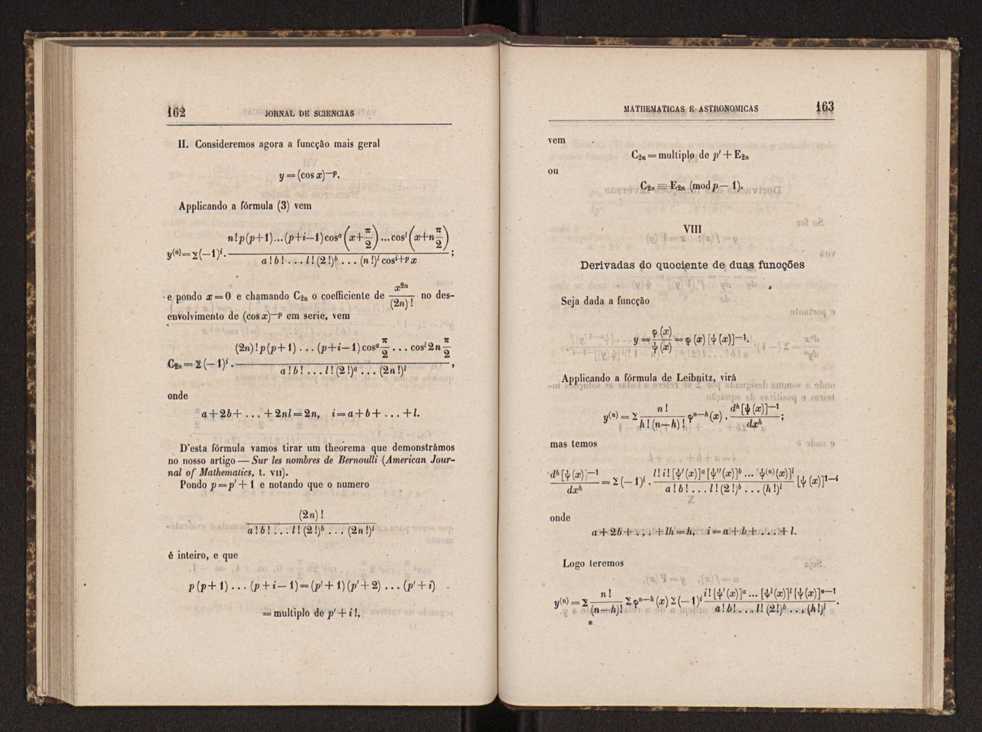 162 JORNAL DE SCIENCIAS
II. Consideremos agora a funcção mais geral
y = (cos x)^{—p}.
Applicando a fórmula (3) vem
y^{(n)} = Σ(—1)^i . \frac{n! p(p+1)...(p+i—1) cos^a (x+\frac{π}{2}) ... cos^l (x+n\frac{π}{2})}{a! b! ... l! (2!)^b ... (n!)^l cos^{i+p} x};
e pondo x = 0 e chamando C_{2n} o coefficiente de \frac{x^{2n}}{(2n)!} no des-
envolvimento de (cos x)^{—p} em serie, vem
C_{2n} = Σ(—1)^i . \frac{(2n)! p(p+1)...(p+i—1) cos^a \frac{π}{2} ... cos^l 2n\frac{π}{2}}{a! b! ... l! (2!)^a ... (2n!)^l},
onde
a + 2b + ... + 2nl = 2n, i = a + b + ... + l.
D'esta fórmula vamos tirar um theorema que demonstrâmos
no nosso artigo — Sur les nombres de Bernoulli (American Jour-
nal of Mathematics, t. VII).
Pondo p = p' + 1 e notando que o numero
\frac{(2n)!}{a! b! ... l! (2!)^b ... (2n!)^l}
é inteiro, e que
p(p+1)...(p+i—1) = (p'+1)(p'+2)...(p'+i)
= multiplo de p' + i!,
MATHEMATICAS E ASTRONOMICAS 163
vem
C_{2n} = multiplo de p' + E_{2n}
ou
C_{2n} ≡ E_{2n} (mod p — 1).
VIII
Derivadas do quociente de duas funcções
Seja dada a funcção
y = \frac{φ(x)}{ψ(x)} = φ(x) [ψ(x)]^{—1}.
Applicando a fórmula de Leibnitz, virá
y^{(n)} = Σ \frac{n!}{h! (n—h)!} φ^{n—h}(x) . \frac{d^h [ψ(x)]^{—1}}{dx^h};
mas temos
\frac{d^h [ψ(x)]^{—1}}{dx^h} = Σ(—1)^i . \frac{l! i! [ψ'(x)]^a [ψ''(x)]^b ... ψ^{(n)}(x)]^l}{a! b! ... l! (2!)^b ... (h!)^l} [ψ(x)]^{1—i}
onde
a + 2b + ... + lh = h, i = a + b + ... + l.
Logo teremos
y^{(n)} = Σ \frac{n!}{(n—h)!} Σ φ^{n—h}(x) Σ(—1)^i \frac{i! [ψ'(x)]^a ... [ψ^l(x)]^l [ψ(x)]^{a—1}}{a! b! ... l! (2!)^b ... (h!)^l}.